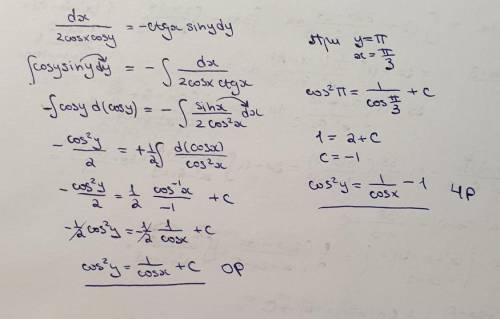 dx / 2cosxcosy = -ctgx siny dy
∫cosy siny dy = -∫ dx / 2cosx ctgx
-∫cosy d(cosy) = -∫ sinx / 2cos²x dx
-cos²y / 2 = +1/2 ∫ d(cosx) / cos²x
-cos²y / 2 = 1/2 cos⁻¹x / -1 + C
-1/2 cos²y = -1/2 1/cosx + C
cos²y = 1/cosx + C ОР
при y=π
x=π/3
cos²π = 1 / cos π/3 + C
1 = 2+C
C = -1
cos²y = 1/cosx - 1 ЧР